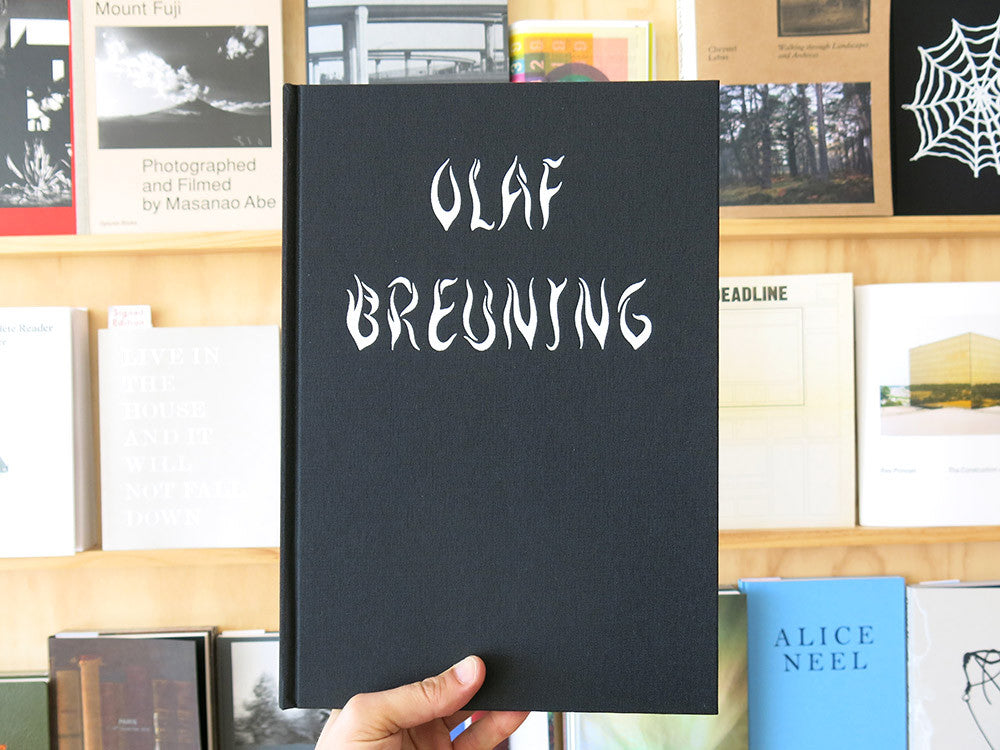 Mount Fuji
Photographed
and Filmed
by Masanao Abe
Walking through Landscapes
and Archives
OLAF
BREUNING
Signed
Edition
LIVE IN
THE
HOUSE
AND IT
WILL
NOT FALL
DOWN
DEADLINE
The Construction
PARIS
ALICE
NEEL